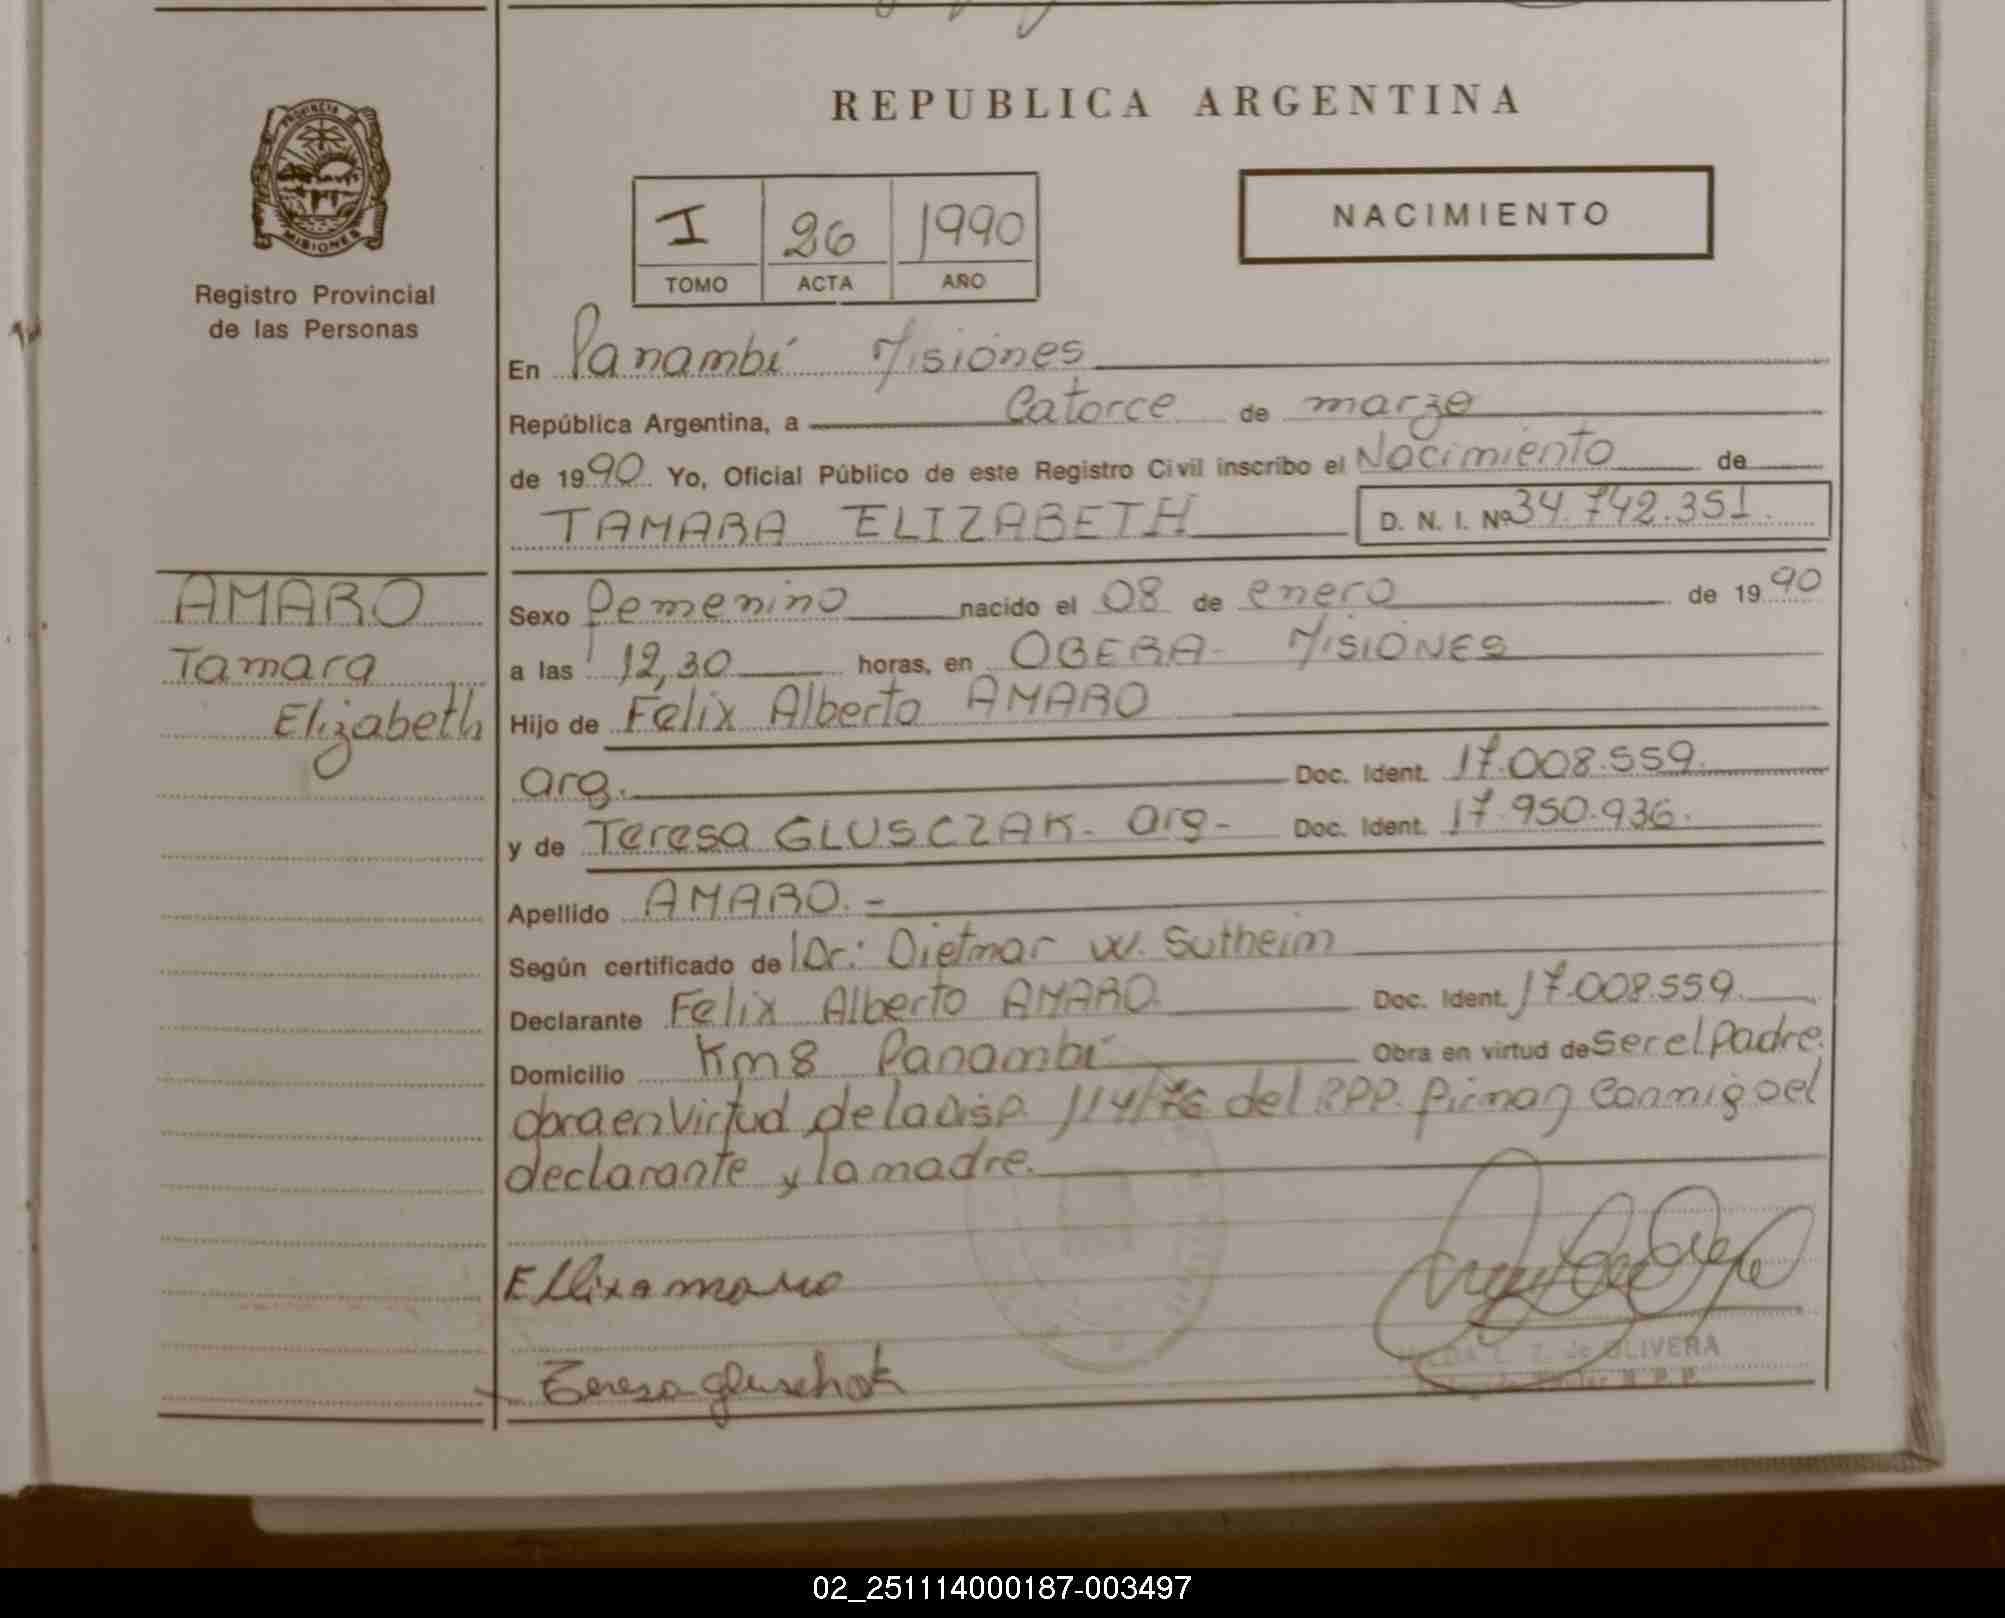 REPUBLICA ARGENTINA
PROVINCIA DE
MISIONES
Registro Provincial
de las Personas
I 26 1990
TOMO ACTA AÑO
NACIMIENTO
En Panambí Misiones
República Argentina, a Catorce de marzo
de 1990 Yo, Oficial Público de este Registro Civil inscribo el Nacimiento de
TAMARA ELIZABETH D. N. I. Nº 34.742.351.
AMARO
Tamara
Elizabeth
Sexo Femenino nacido el 08 de enero de 1990
a las 12,30 horas, en OBERA - MISIONES
Hijo de Felix Alberto AMARO
arg. Doc. Ident. 17.008.559.
y de Teresa GLUSCZAK - arg - Doc. Ident. 17.950.936.
Apellido AMARO. -
Según certificado de Dr: Dietmar W. Sutheim
Declarante Felix Alberto AMARO. Doc. Ident. 17.008.559.
Domicilio Km 8 Panambí Obra en virtud de ser el Padre.
obra en Virtud de la disp. 114/76 del RPP. firman Conmigo el
declarante y la madre.
Ellix amaro
Teresa gluschak
de OLIVERA
R. P. P.
02_251114000187-003497